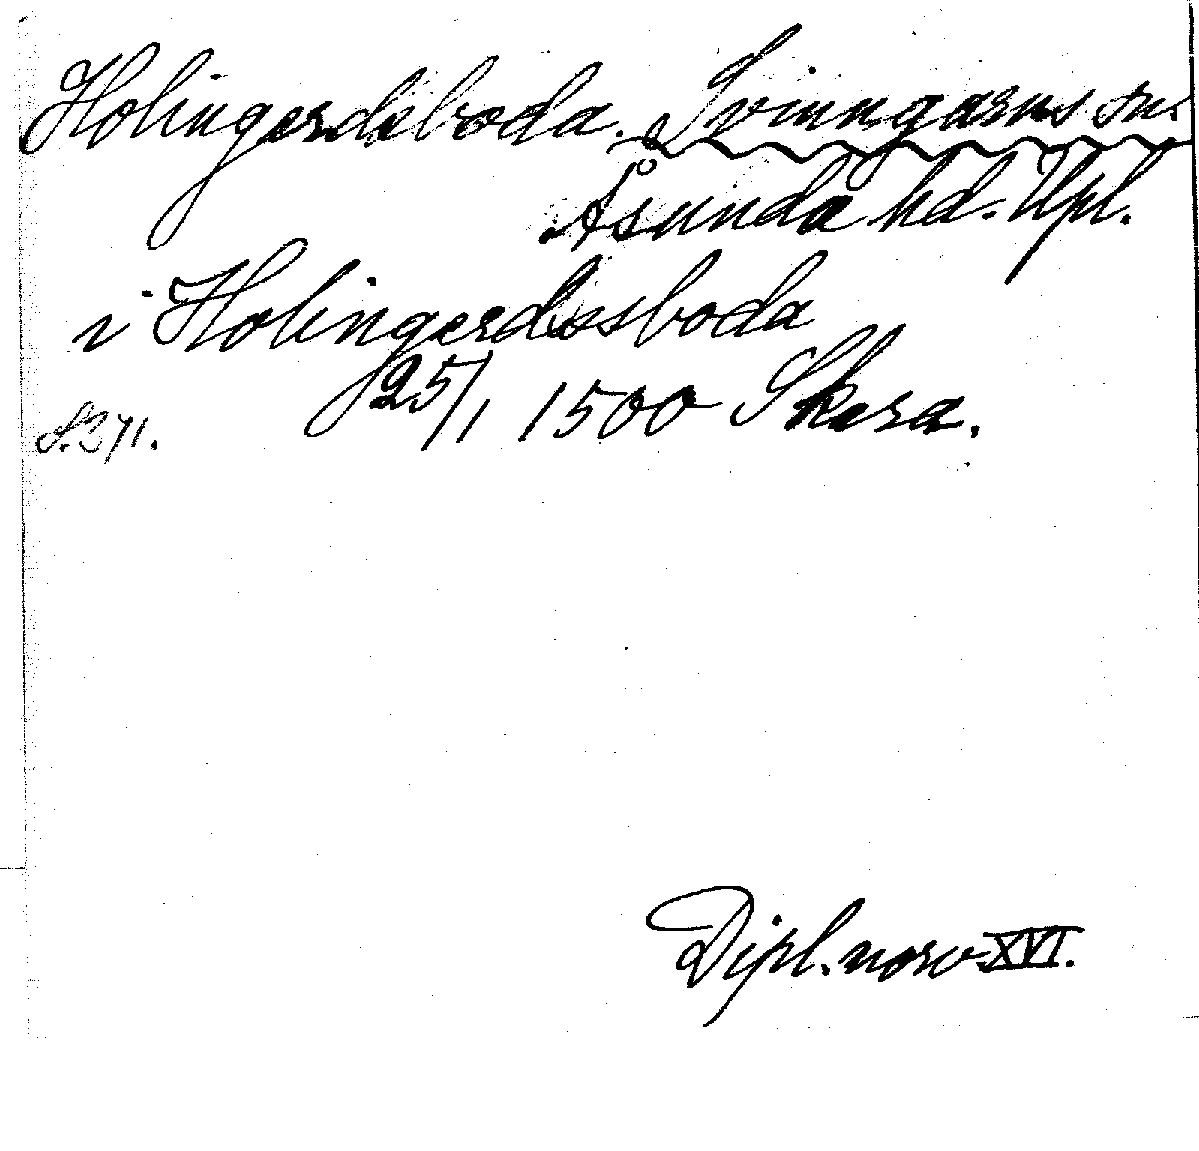 Holingerdsboda. Svinngarns sn.
Åsunda hd. Upl.
i Holingerdssboda
25/1 1500 Skara.
S. 371.
Dipl. norv XVI.